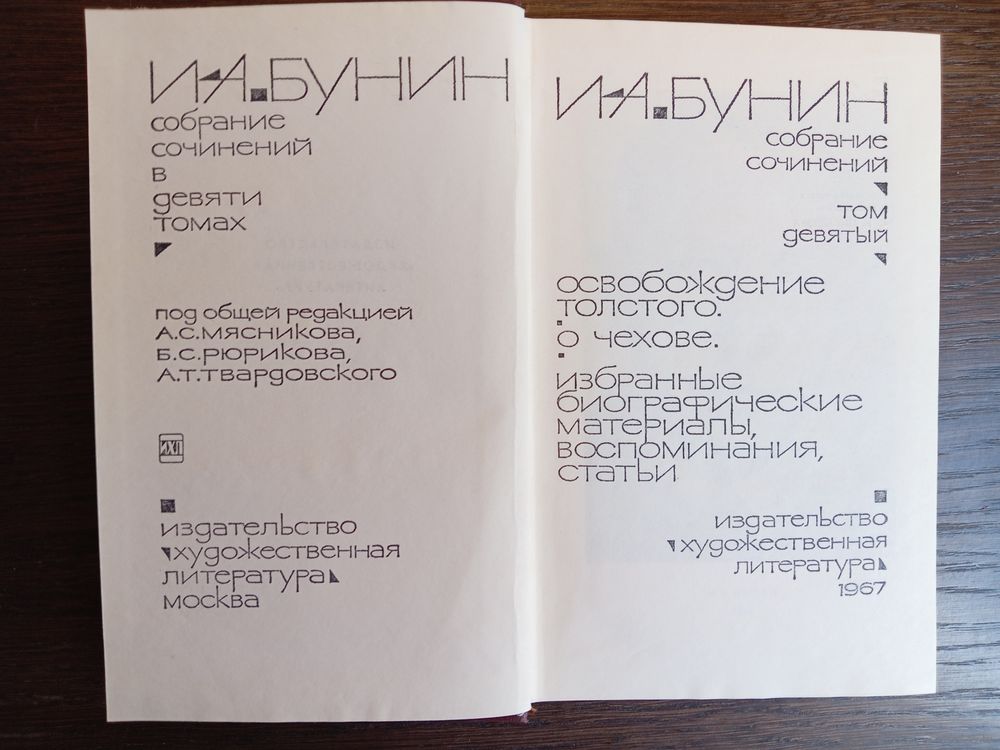 И.А.БУНИН
собрание
сочинений
в
девяти
томах
под общей редакцией
А.С.Мясникова,
Б.С.Рюрикова,
А.Т.Твардовского
издательство
художественная
литература
москва
И.А.БУНИН
собрание
сочинений
том
девятый
освобождение
толстого.
о чехове.
избранные
биографические
материалы,
воспоминания,
статьи
издательство
художественная
литература
1967